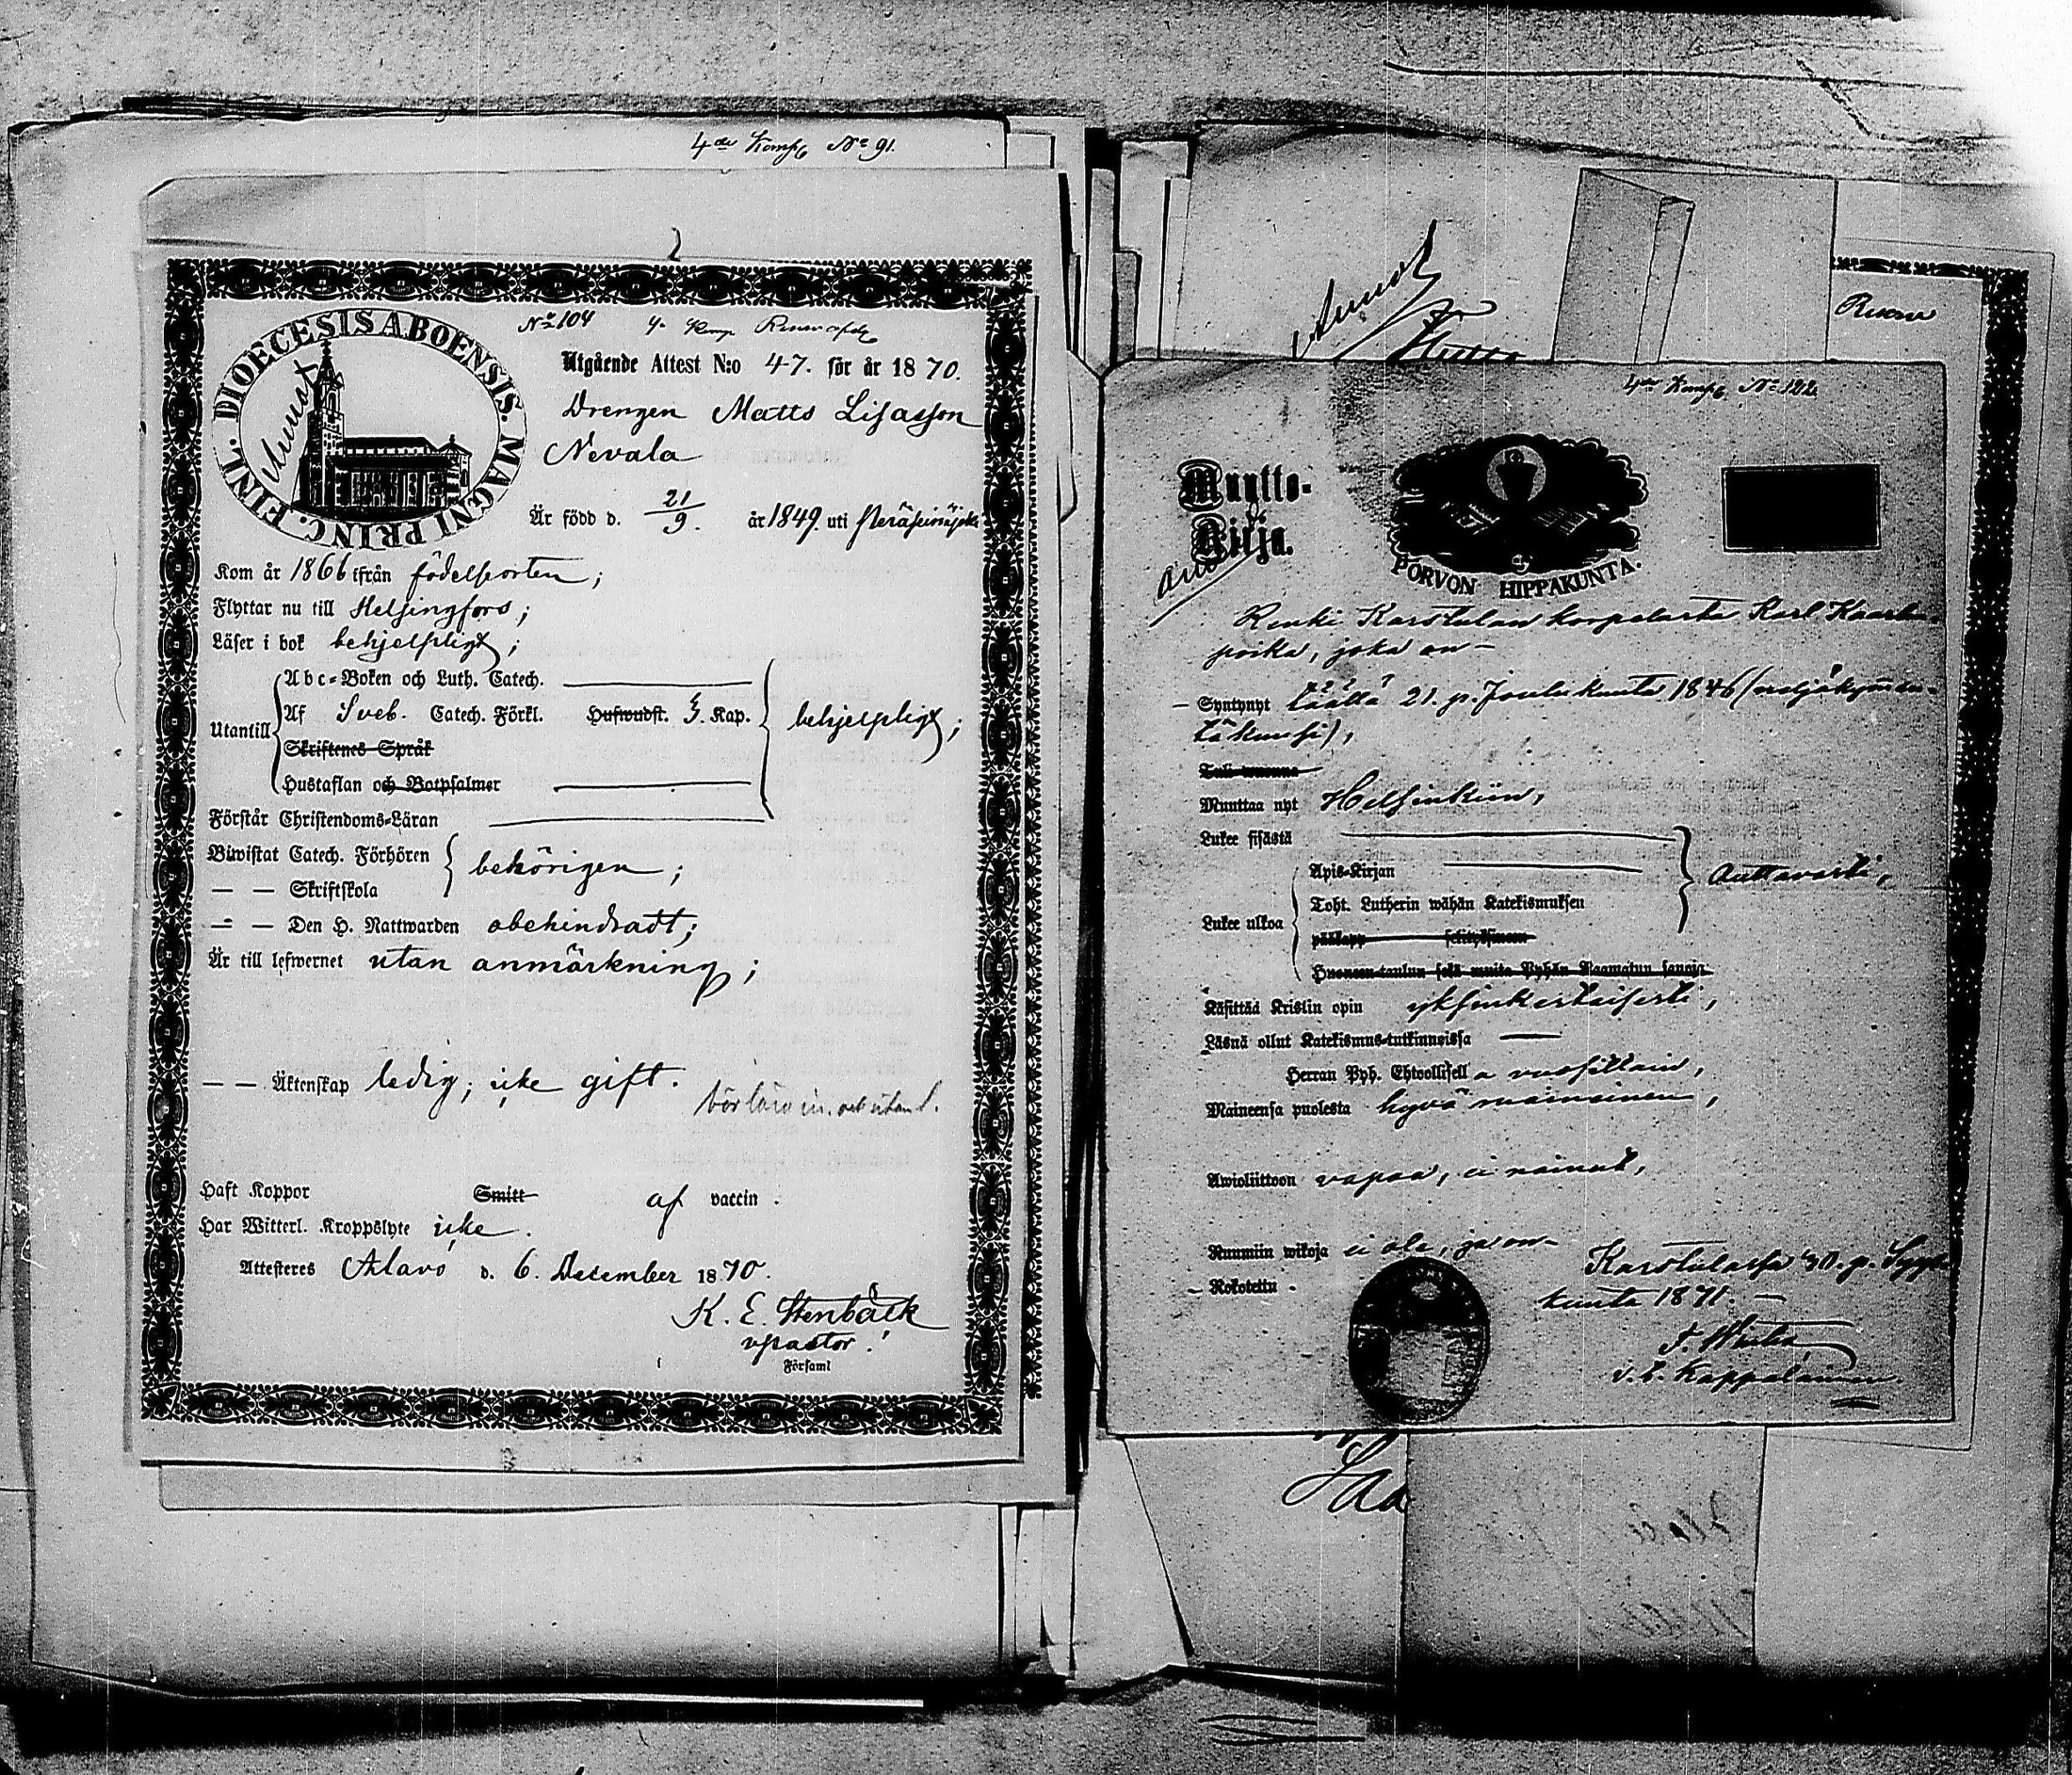 4de Komp No 91.
DIOECESIS ABOENSIS. MAGNI PRINC. FINL.
No 104 4. Komp
Utgående Attest N:o 47. för år 1870.
Drengen Matts Lisasson
Nevala
Är född d. 21/9. år 1849. uti Peräseinäjoki
Kom år 1866 ifrån födelseorten;
Flyttar nu till Helsingfors;
Läser i bok behjelpligt;
Abc-Boken och Luth. Catech.
Utantill Af Sveb. Catech. Förkl. Hufwudst. 3. Kap. behjelpligt;
Skriftenes Språk
Hustaflan och Botpsalmer
Förstår Christendoms-Läran
Biwistat Catech. Förhören behörigen;
— — Skriftskola
— — Den H. Nattwarden obehindradt;
Är till lefwernet utan anmärkning;
— — Äktenskap ledig; icke gift.
Haft Koppor Smitt af vaccin.
Har Witterl. Kroppslyte icke.
Attesteres Alavo d. 6. December 1870.
K. E. Stenbäck
vpastor.
Församl
Reserv
4de Komp No 122
Muutto-
Kirja.
PORVON HIPPAKUNTA.
Renki Karstulan korpelasta Karl Kaarlen-
poika, joka on —
— Syntynyt täällä 21. p. Joulukuuta 1846 (neljäkymmen-
tä kuusi),
Tuli wuonna
Muuttaa nyt Helsinkiin,
Lukee sisästä
Apis-Kirjan auttavasti,
Lukee ulkoa Toht. Lutherin wähän Katekismuksen
pääkapp selityksineen
Huoneen-taulun sekä muita Pyhän Raamatun sanoja
Käsittää Kristin opin yksinkertaisesti,
Läsnä ollut Katekismus-tutkinnoissa —
Herran Pyh. Ehtoollisella vuosittain,
Maineensa puolesta hyvä maineinen,
Awioliittoon vapaa, ei nainut,
Ruumiin wikoja ei ole, ja on —
— Rokotettu. Karstulassa 30. p. Syys-
kuuta 1871. —
v. t. Kappalainen.